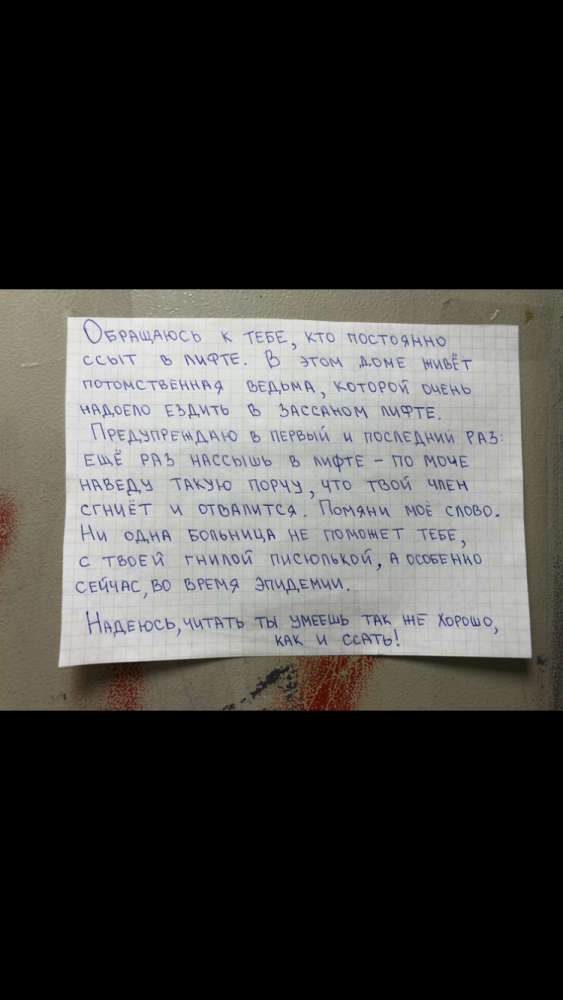 Обращаюсь к тебе, кто постоянно
ссыт в лифте. В этом доме живёт
потомственная ведьма, которой очень
надоело ездить в зассаном лифте.
Предупреждаю в первый и последний раз:
ещё раз нассышь в лифте – по моче
наведу такую порчу, что твой член
сгниёт и отвалится. Помяни моё слово.
Ни одна больница не поможет тебе,
с твоей гнилой писюлькой, а особенно
сейчас, во время эпидемии.
Надеюсь, читать ты умеешь так же хорошо,
как и ссать!